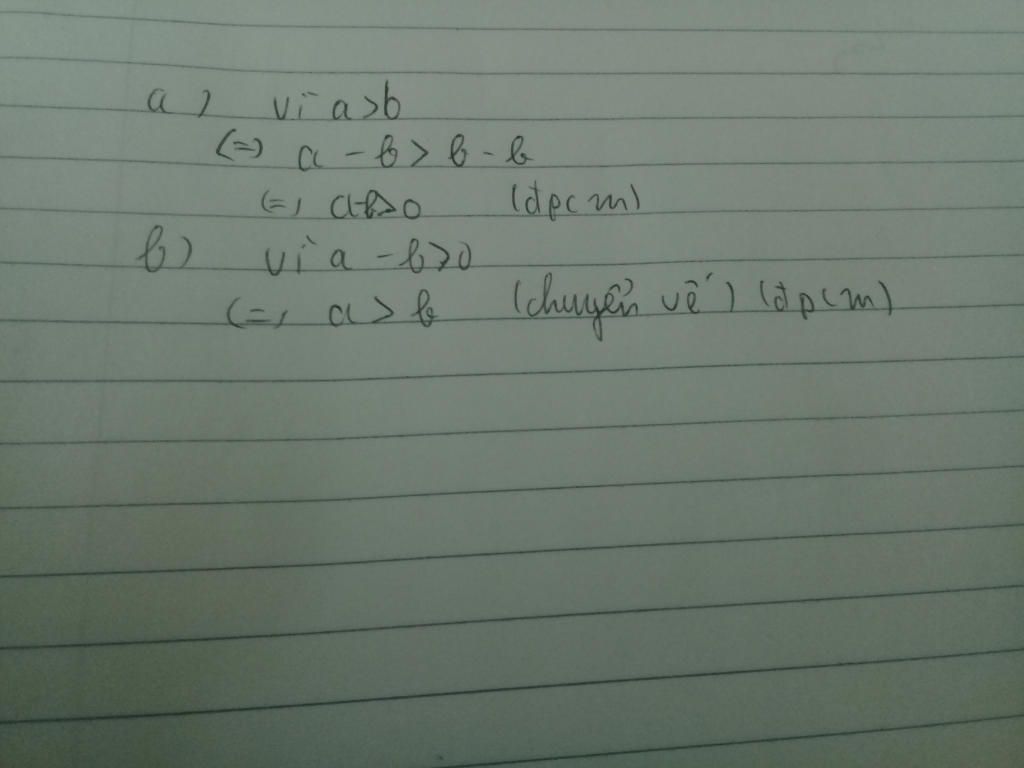 a) vì a>b
(=) a - b > b - b
(=) a-b>0 (đpcm)
b) vì a - b>0
(=) a > b (chuyển vế) (đpcm)